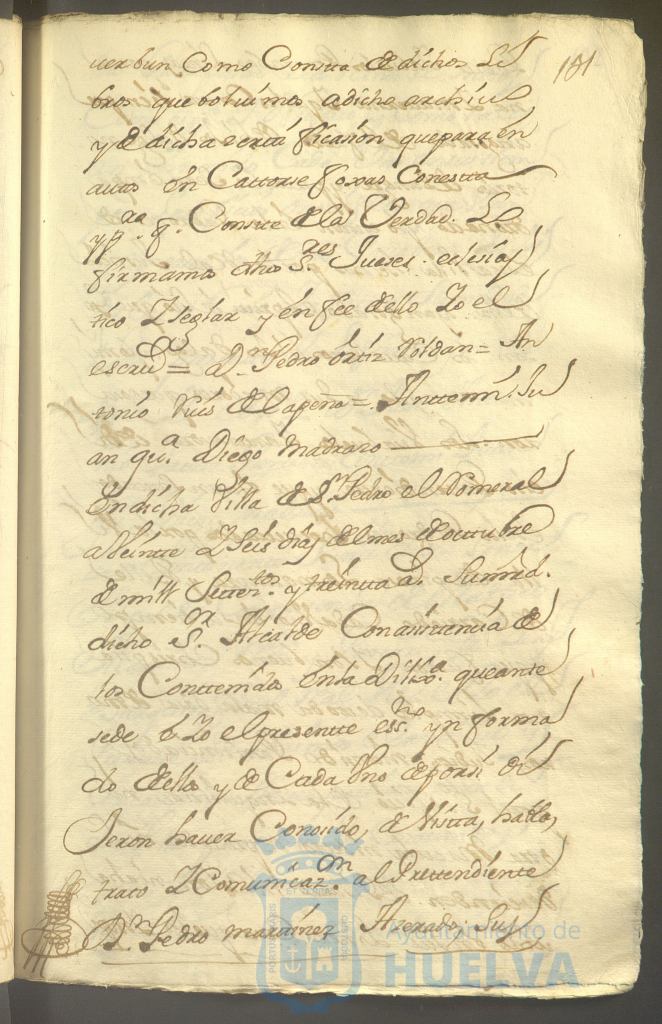 verbun Como Consta de dichos Li
181
bros que bolvimos a dicho archivo
y de dicha certificasion que para en
autos en Cattorse foxas Conestta
y pª. q. Conste de la Verdad. Lo
firmamos dhos Sres Jueses. eclesias
tico Y seglar y en fee dello Yo el
escrivº = Dn Pedro Ortiz Roldan = An
tonio Ruis de la pena = Anttemi. Ju
an
Diego Madraso
En dicha Villa de Sn Pedro el Romeral
a Veintte Y Seis dias del mes de octtubre
de mill Settettos. y treintta as. Su mrd.
dicho Sor Alcalde Con asistencia de
los Conttenidos en la Dilixª. que antte
sede e Yo el presentte essno. ynforma
do dellos y de Cada Uno de por si di
Jeron haver Conosido, de Vistta, habla,
trato Y Comunicazon. al Prettendiente
Dn Pedro martinez Aterado, Sus
Ayuntamiento de
HUELVA